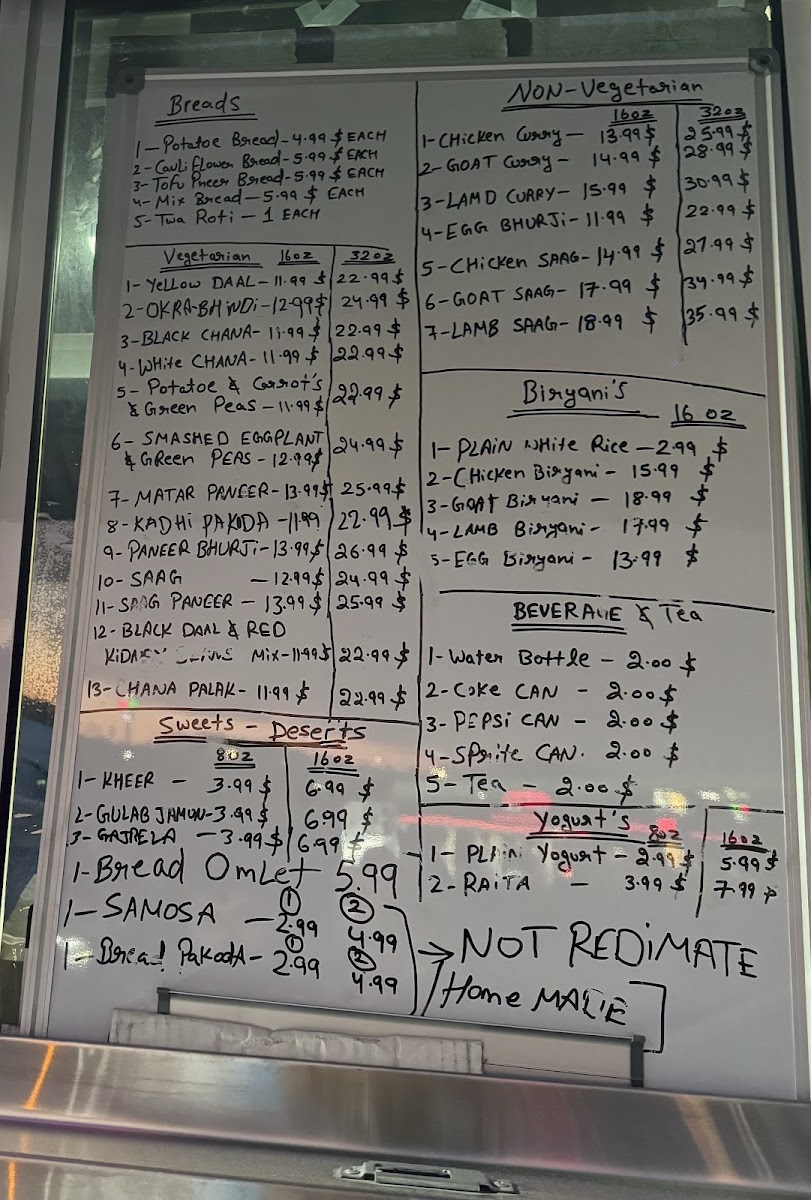 Breads
1- Potatoe Bread - 4.99 $ EACH
2- Cauliflower Bread - 5.99 $ EACH
3- Tofu Pneer Bread - 5.99 $ EACH
4- Mix Bread - 5.99 $ EACH
5- Twa Roti - 1 EACH
Vegetarian 16oz 32oz
1- YELLOW DAAL - 11.99 $ 22.99 $
2- OKRA-BHINDI - 12.99 $ 24.99 $
3- BLACK CHANA - 11.99 $ 22.99 $
4- WHITE CHANA - 11.99 $ 22.99 $
5- Potatoe & Carrot's
& Green Peas - 11.99 $ 22.99 $
6- SMASHED EGGPLANT
& GReen PEAS - 12.99 $ 24.99 $
7- MATAR PANEER - 13.99 $ 25.99 $
8- KADHI PAKODA - 11.99 22.99 $
9- PANEER BHURJI - 13.99 $ 26.99 $
10- SAAG - 12.99 $ 24.99 $
11- SAAG PANEER - 13.99 $ 25.99 $
12- BLACK DAAL & RED
Mix - 11.99 $ 22.99 $
13- CHANA PALAK - 11.99 $ 22.99 $
Sweets - Deserts
8oz 16oz
1- KHEER - 3.99 $ 6.99 $
2- GULAB JAMUN - 3.99 $ 6.99 $
3- GAJRELA - 3.99 $ 6.99 $
1- Bread OmLet 5.99
1- SAMOSA - ① 2.99 ② 4.99
1- Bread PakodA - ① 2.99 ② 4.99
NON-Vegetarian
16oz 32oz
1- CHicken Curry - 13.99 $ 25.99 $
2- GOAT Curry - 14.99 $ 28.99 $
3- LAMD CURRY - 15.99 $ 30.99 $
4- EGG BHURJi - 11.99 $ 22.99 $
5- CHicken SAAG - 14.99 $ 27.99 $
6- GOAT SAAG - 17.99 $ 34.99 $
7- LAMB SAAG - 18.99 $ 35.99 $
Biryani's
16 oz
1- PLAiN White Rice - 2.99 $
2- CHicken Biryani - 15.99 $
3- GOAT Biryani - 18.99 $
4- LAMB Biryani - 17.99 $
5- EGG Biryani - 13.99 $
BEVERAGE & Tea
1- Water Bottle - 2.00 $
2- Coke CAN - 2.00 $
3- PEPSi CAN - 2.00 $
4- SPrite CAN. 2.00 $
5- Tea - 2.00 $
Yogurt's
8oz 16oz
1- PLAiN Yogurt - 2.99 $ 5.99 $
2- RAiTA - 3.99 $ 7.99 $
→ NOT REDiMATE
Home MADE